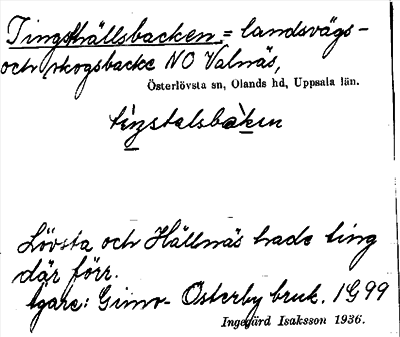 Tingsthällsbacken = landsvägs-
och skogsbacke NO Valnäs,
Österlövsta sn, Olands hd, Uppsala län.
Lövsta och Hållnäs hade ting
där förr.
Ägare: Gimo- Österby bruk. 1G99
Ingegärd Isaksson 1936.